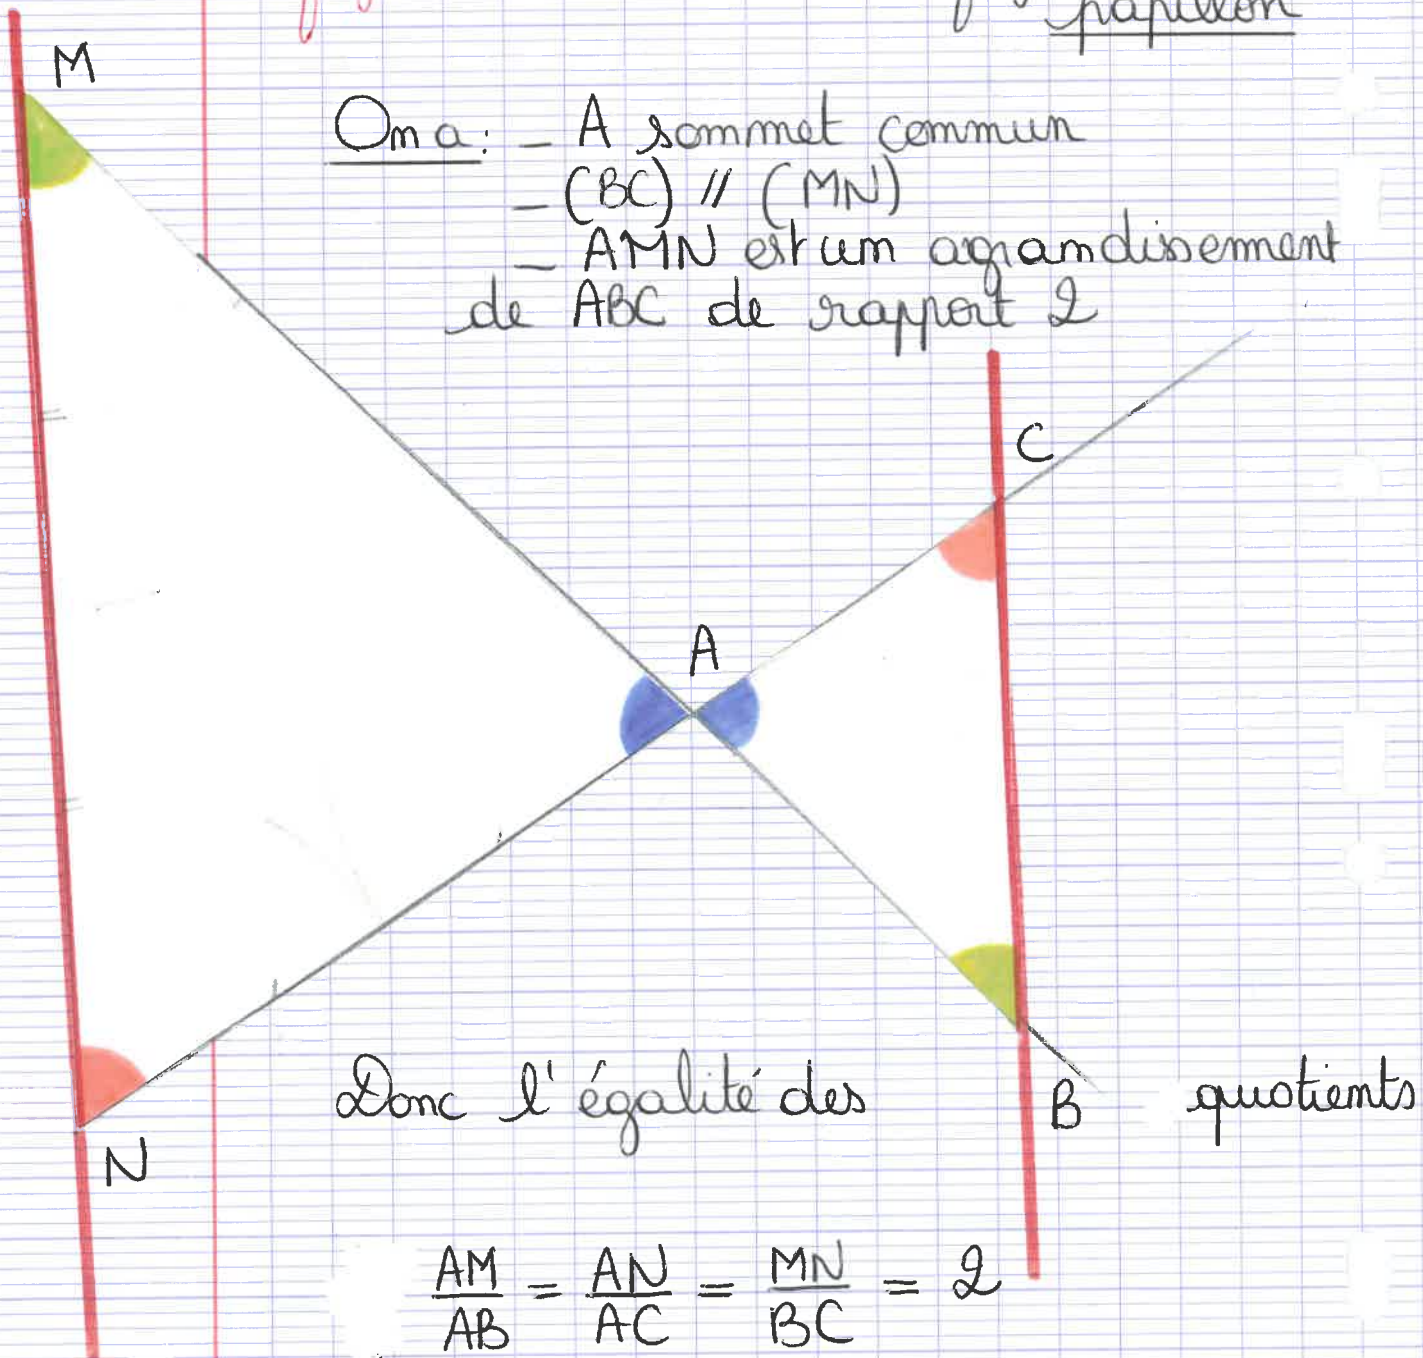 papillon
M
On a: - A sommet commun
- (BC) // (MN)
- AMN est un agrandissement
de ABC de rapport 2
C
A
Donc l'égalité des B quotients
N
AM/AB = AN/AC = MN/BC = 2